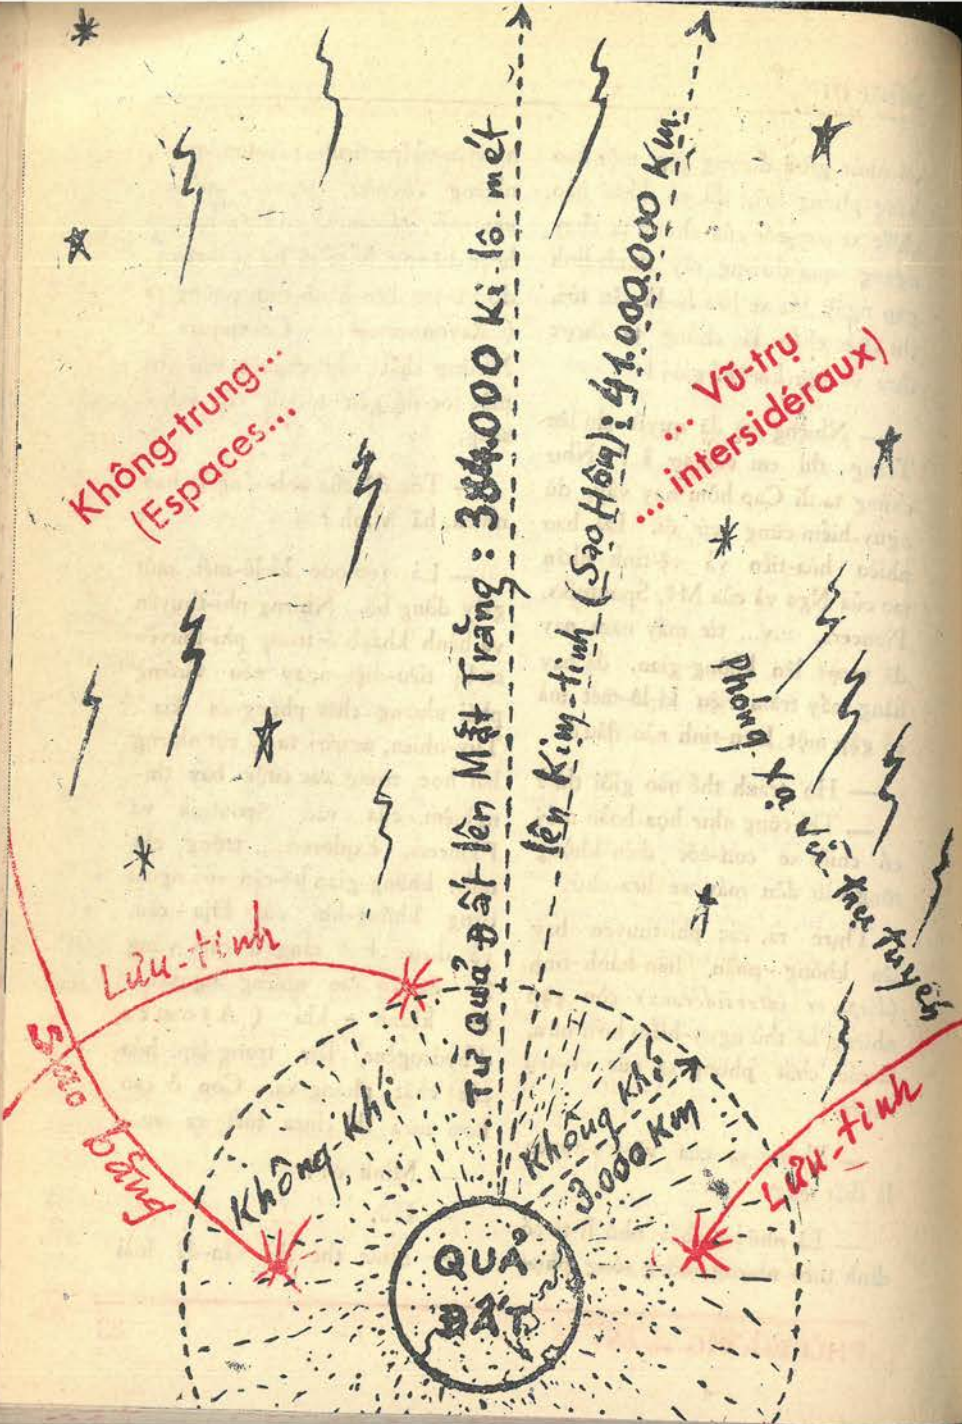 Không-trung...
(Espaces...
... Vũ-trụ
...intersidéraux)
Từ Quả Đất lên Mặt Trăng : 384.000 Ki-lô-mét
lên Kim-tinh (Sao Hôm): 41.000.000 Km.
Phóng-xạ Vũ-trụ tuyến
Lưu-tinh
Sao băng
Lưu-tinh
Không-khí
Không khí
3.000 Km
QUẢ
ĐẤT